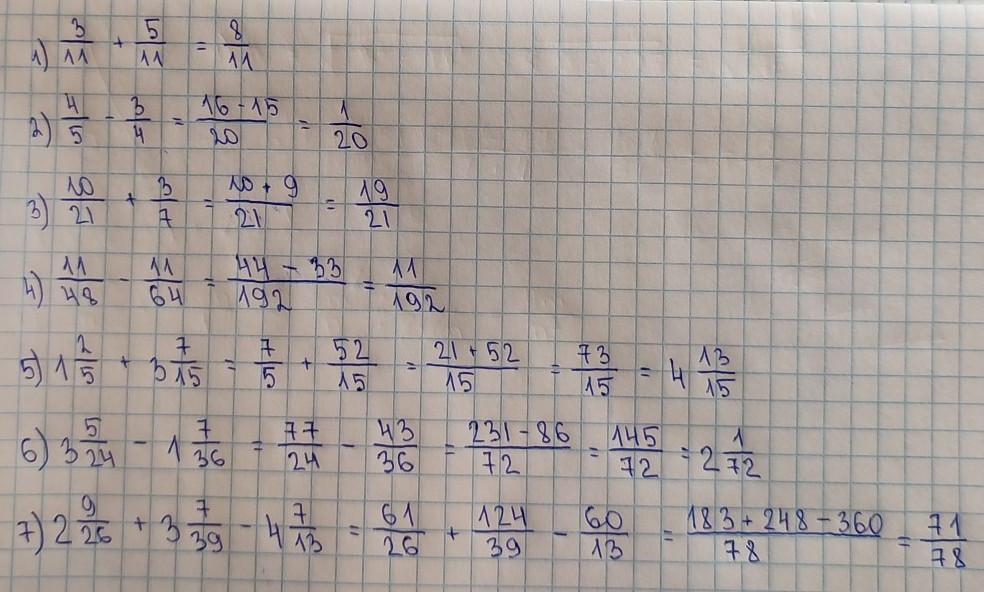 1) 3/11 + 5/11 = 8/11
2) 4/5 - 3/4 = 16-15/20 = 1/20
3) 10/21 + 3/7 = 10+9/21 = 19/21
4) 11/48 - 11/64 = 44-33/192 = 11/192
5) 1 2/5 + 3 7/15 = 7/5 + 52/15 = 21+52/15 = 73/15 = 4 13/15
6) 3 5/24 - 1 7/36 = 77/24 - 43/36 = 231-86/72 = 145/72 = 2 1/72
7) 2 9/26 + 3 7/39 - 4 7/13 = 61/26 + 124/39 - 60/13 = 183+248-360/78 = 71/78